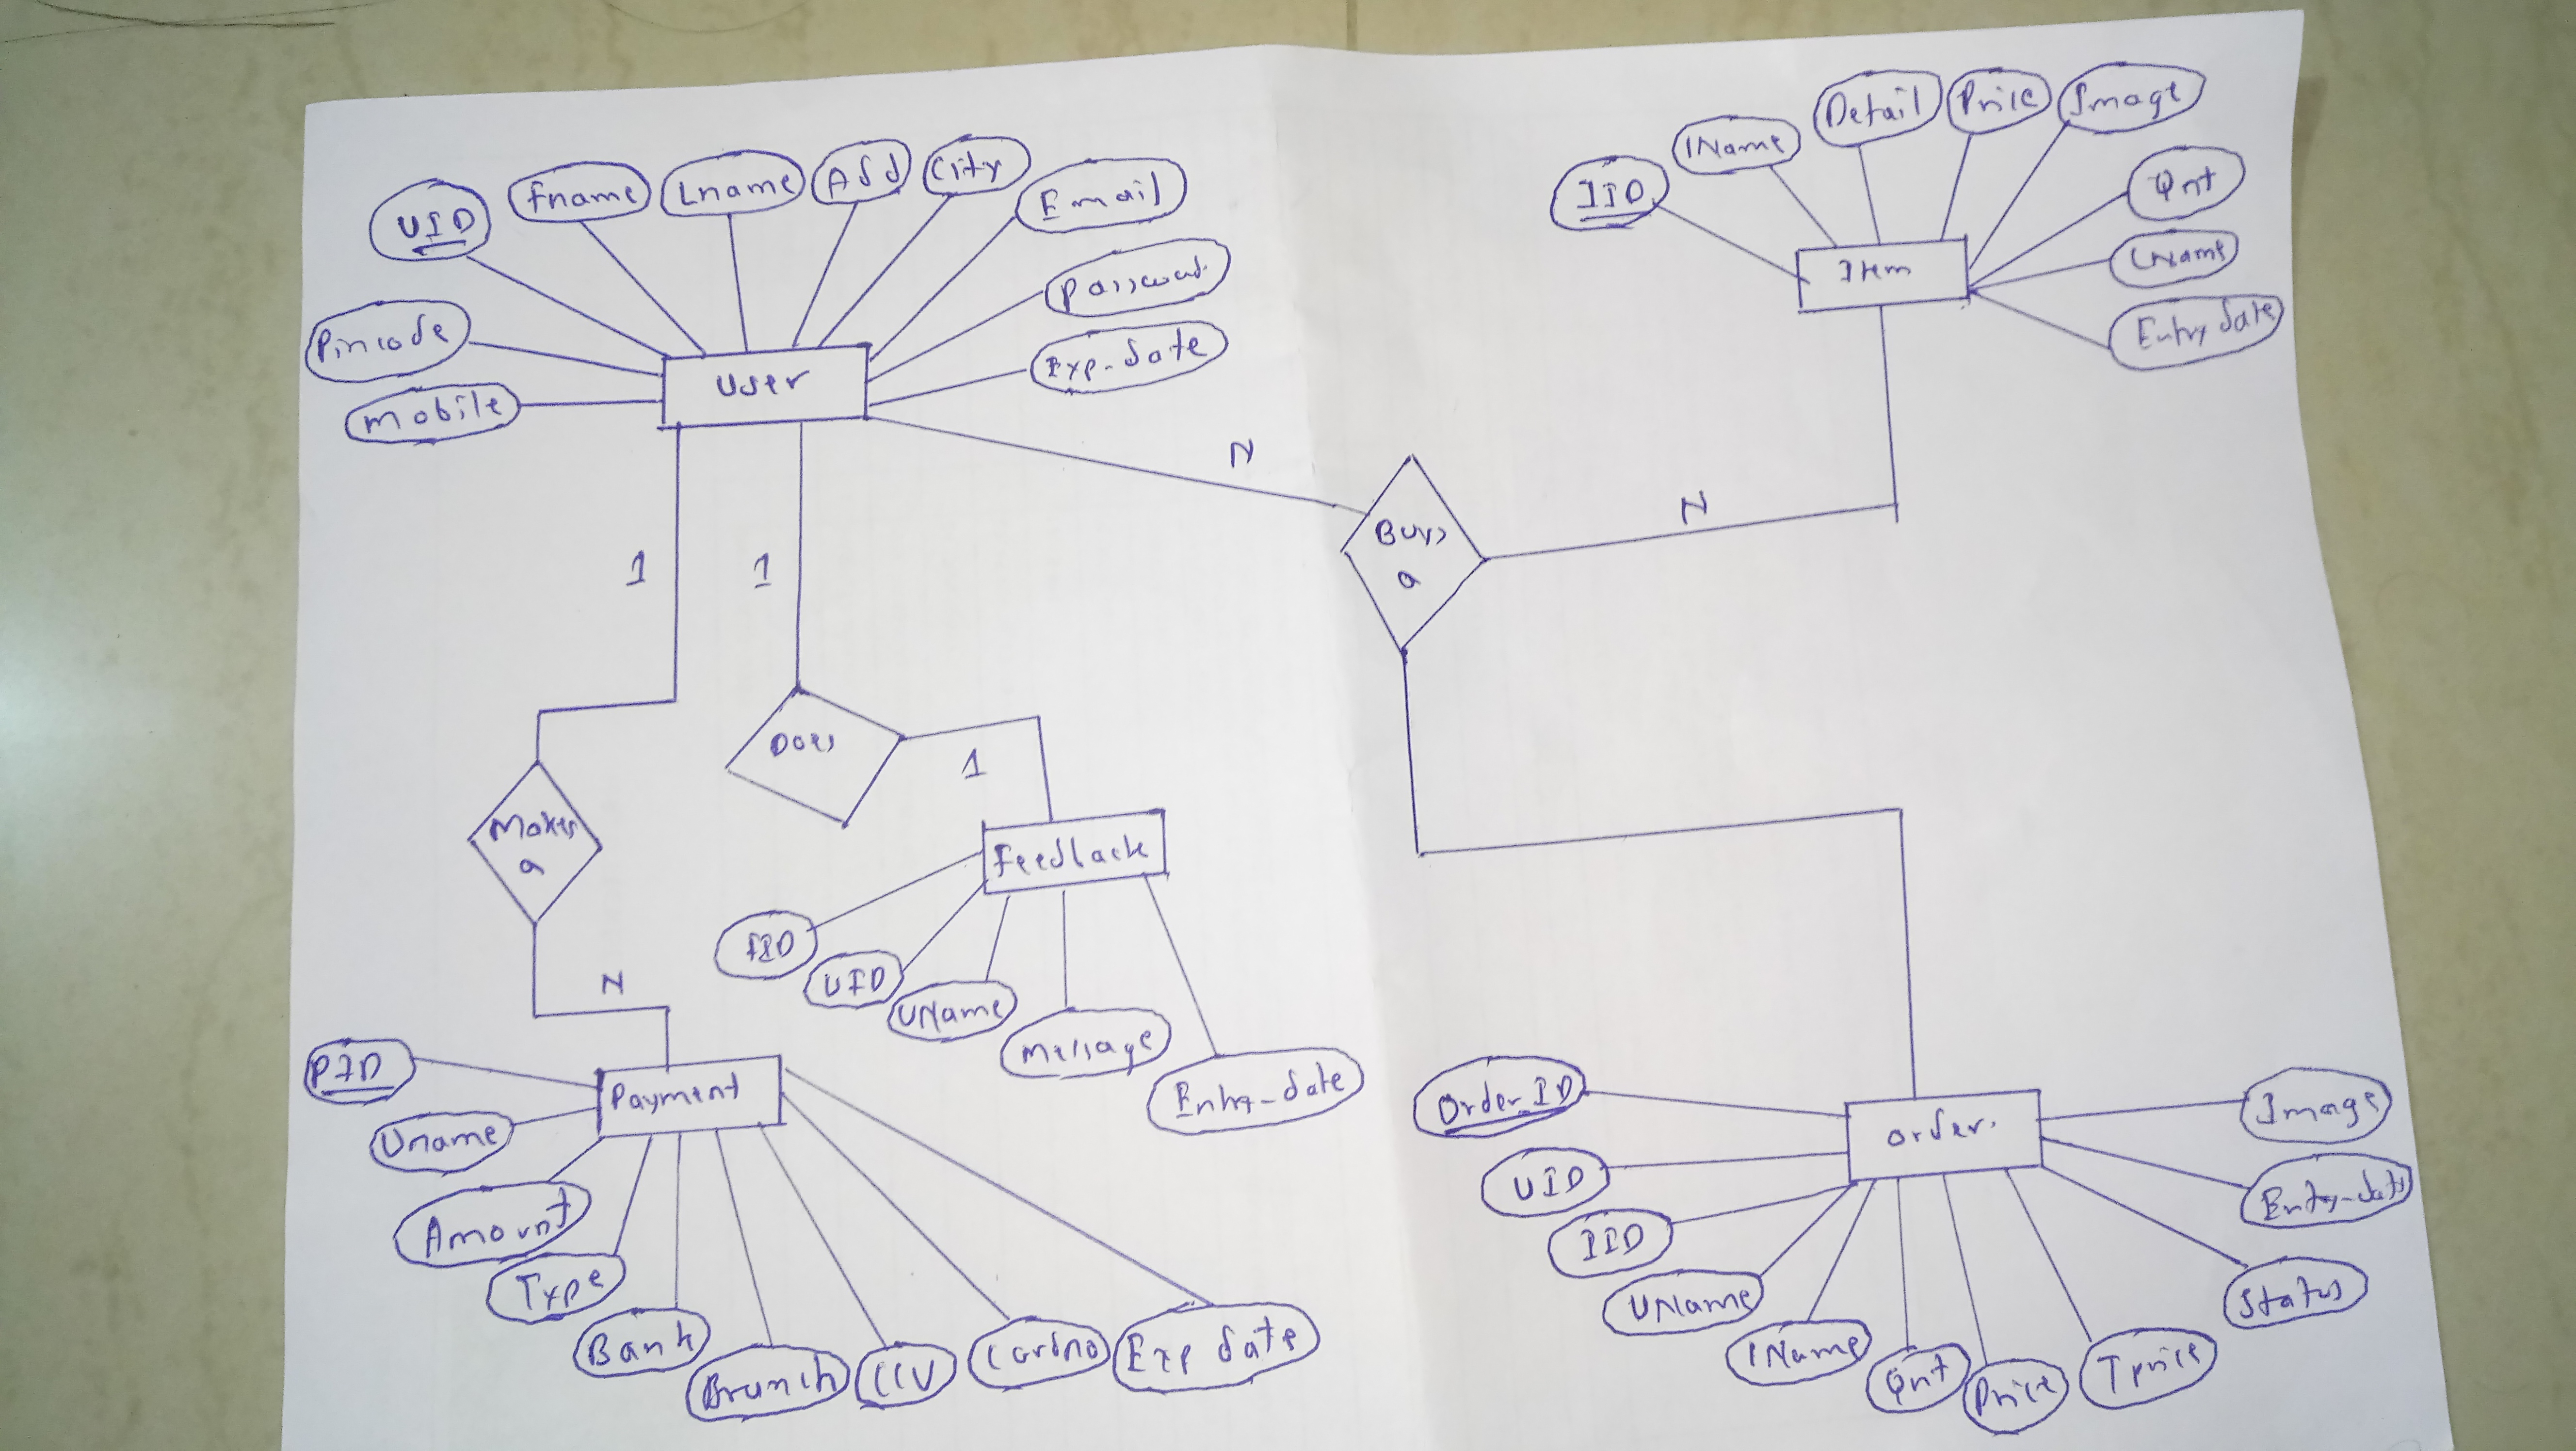 UID
Fname
Lname
Add
City
Email
Password
Exp-date
Pincode
Mobile
User
IID
IName
Detail
Price
Image
Qnt
CName
Entry date
Item
N
N
Buys
a
1
1
Does
1
Makes
a
N
Feedback
FID
UID
UName
Message
Entry-date
Payment
PID
Uname
Amount
Type
Bank
Brunch
CCV
Cardno
Exp date
Order.
Order_ID
UID
IID
UName
IName
Qnt
Price
Tprice
Status
Entry-date
Image